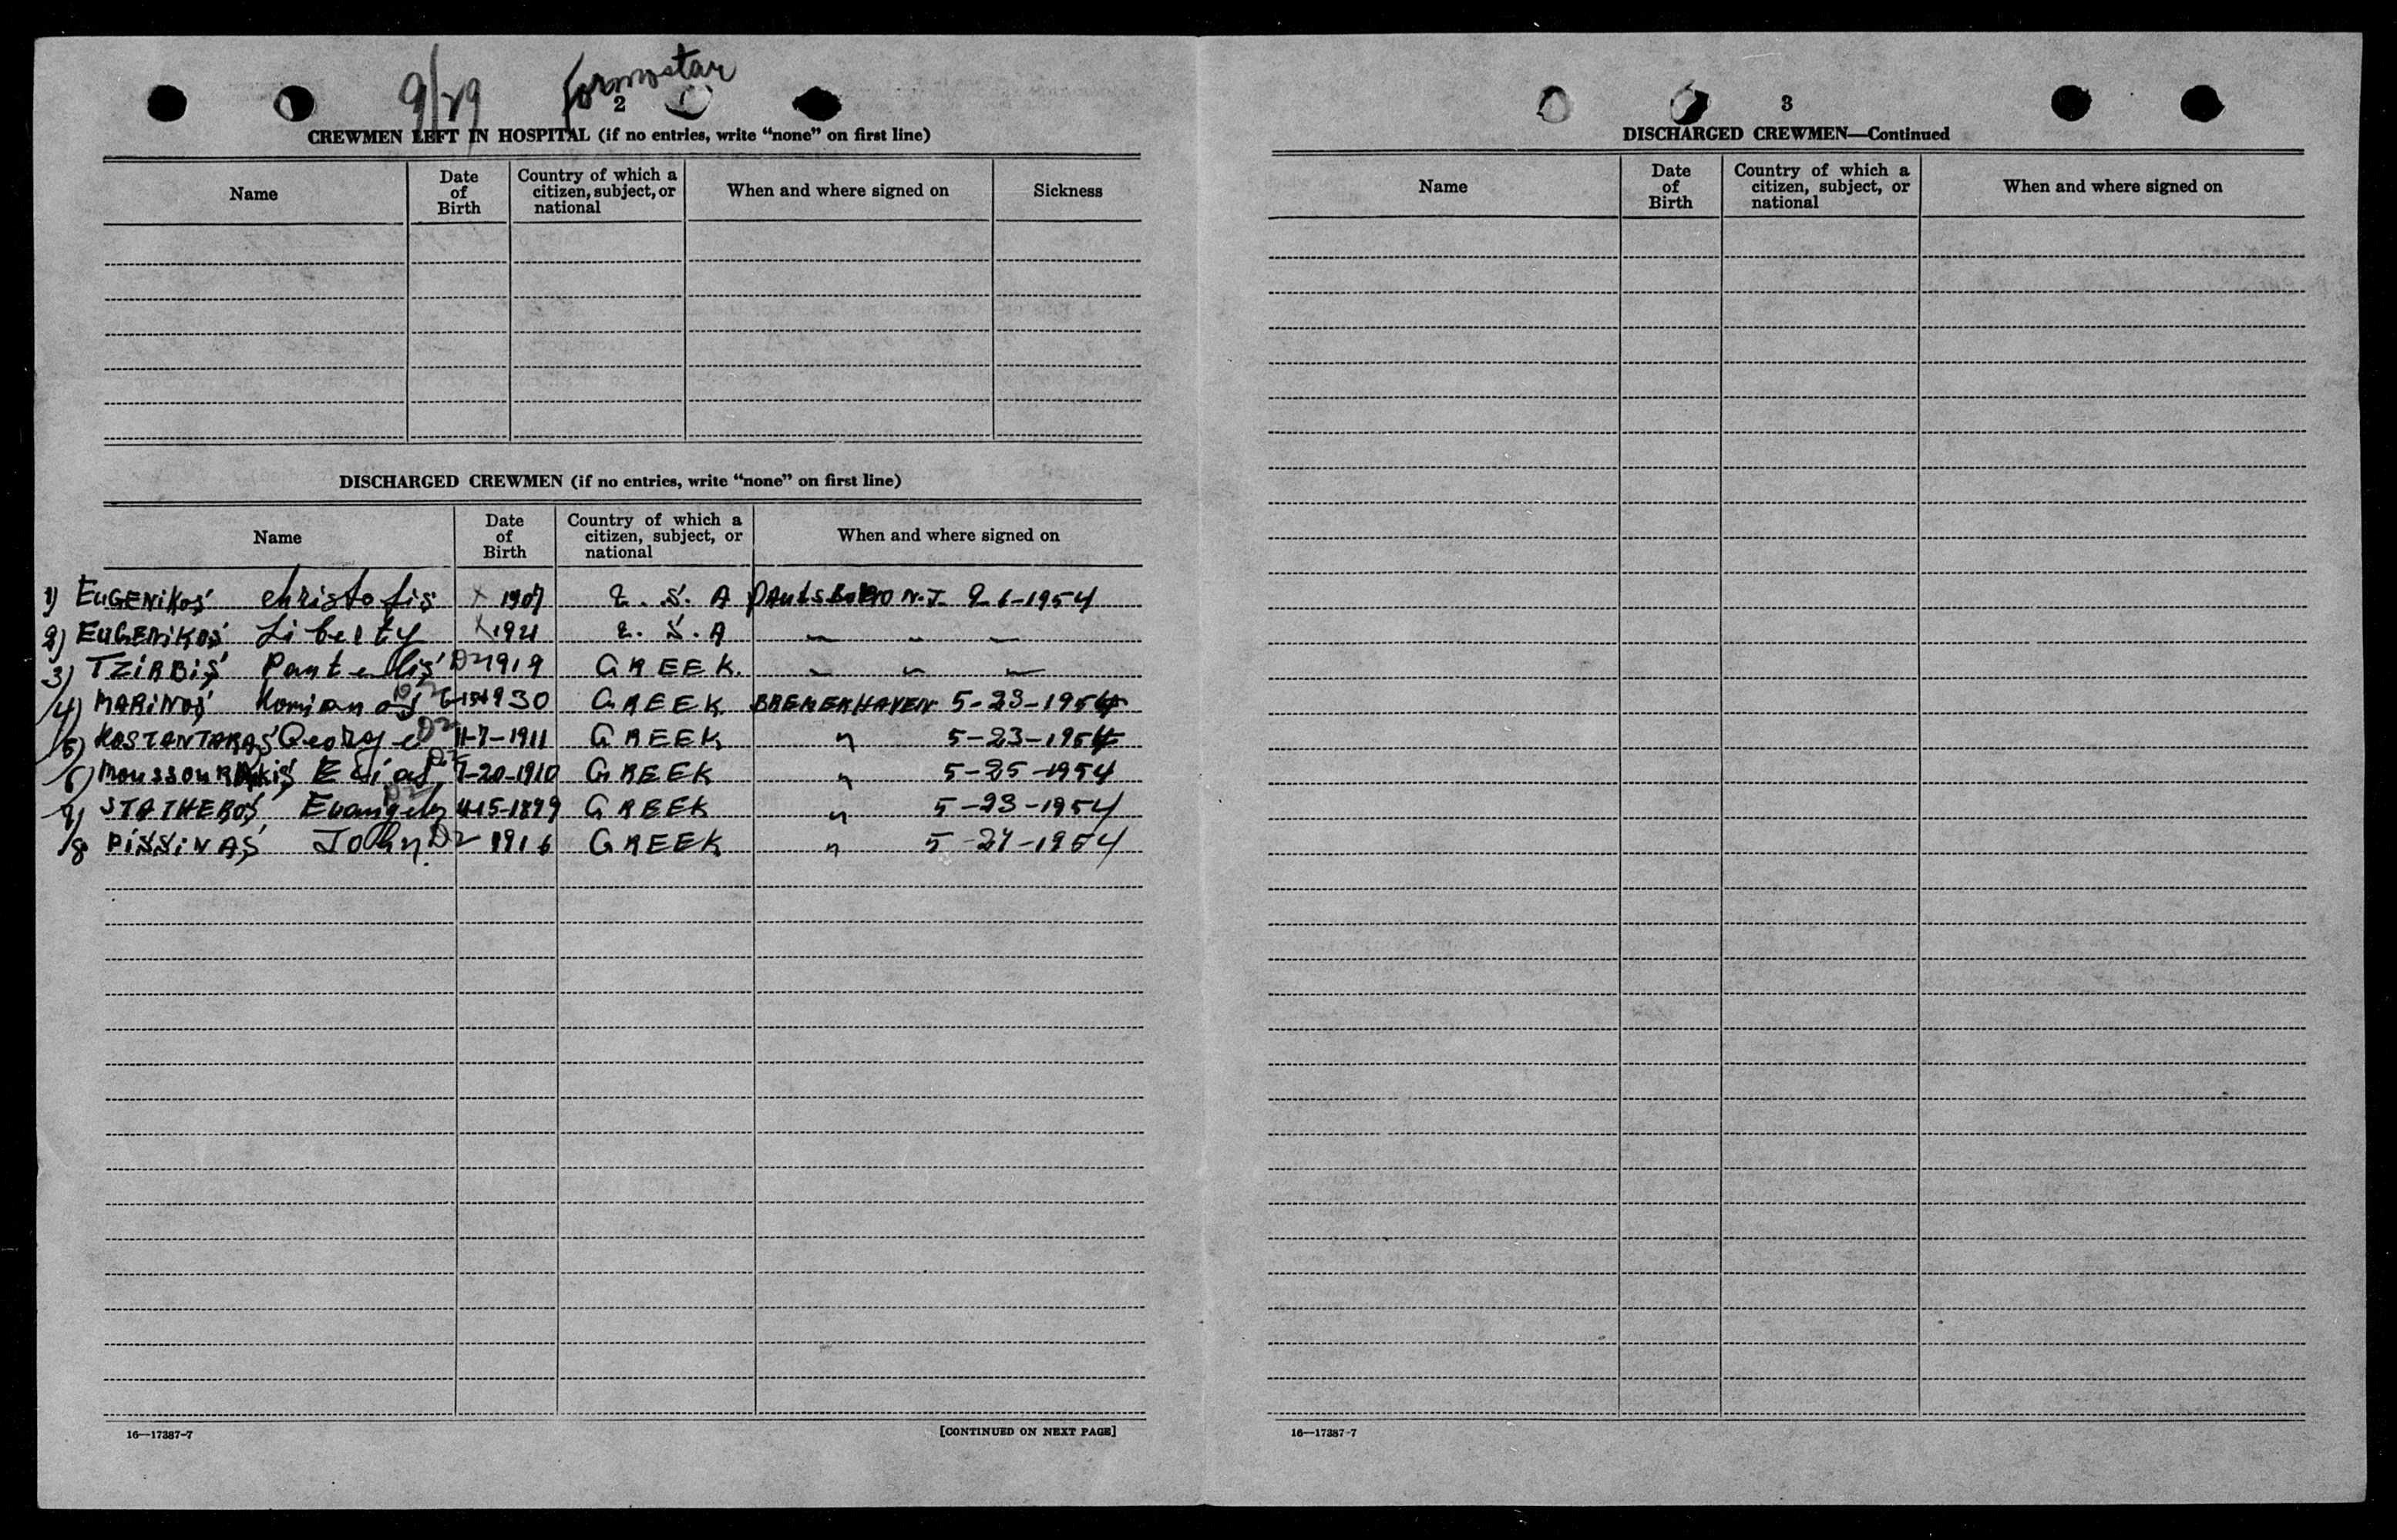 9/29 Formostar
2
CREWMEN LEFT IN HOSPITAL (if no entries, write “none” on first line)
Name
Date of Birth
Country of which a citizen, subject, or national
When and where signed on
Sickness
DISCHARGED CREWMEN (if no entries, write “none” on first line)
Name
Date of Birth
Country of which a citizen, subject, or national
When and where signed on
1) EUGENIKOS christofis X 1907 U. S. A PAULSBORO N.J. 2-1-1954
2) EUGENIKOS Liberty X 1921 U. S. A " " "
3) TZIRBIS Pantelis D2 1919 GREEK. " " "
4) MARINOS Komianos D2 1930 GREEK BREMERHAVEN 5-23-1954
5) KOSTANTARAS George D2 11-7-1911 GREEK " 5-23-1954
6) MOUSSOURAKIS Elias D2 7-20-1910 GREEK " 5-25-1954
7) STATHEROS Evangelos D2 4-15-1899 GREEK " 5-23-1954
8 PISSINAS John D2 1916 GREEK " 5-24-1954
16—17387-7
[CONTINUED ON NEXT PAGE]
3
DISCHARGED CREWMEN—Continued
Name
Date of Birth
Country of which a citizen, subject, or national
When and where signed on
16—17387-7